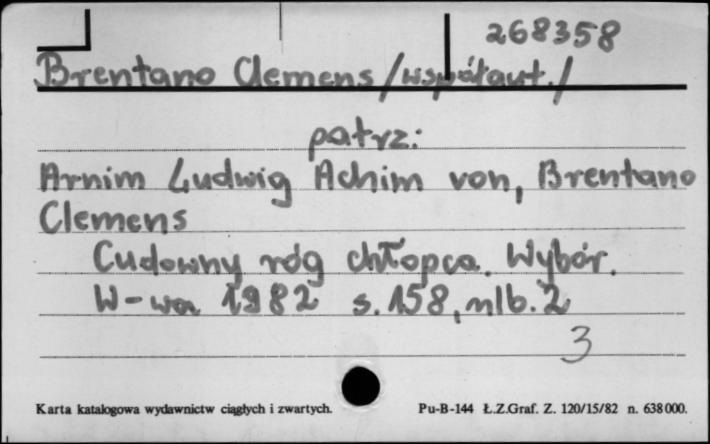 268358
Brentano Clemens /współaut./
patrz:
Arnim Ludwig Achim von, Brentano
Clemens
Cudowny róg chłopca. Wybór.
W-wa 1982 s. 158, nlb. 2
3
Karta katalogowa wydawnictw ciągłych i zwartych. Pu-B-144 Ł.Z.Graf. Z. 120/15/82 n. 638000.